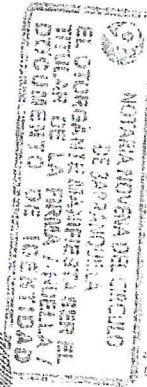 NOTARIA NOVENA DEL CIRCULO
DE BARRANQUILLA
EL OTORGANTE MANIFIESTA SER EL
TITULAR DE LA FIRMA / HUELLA /
DOCUMENTO DE IDENTIDAD